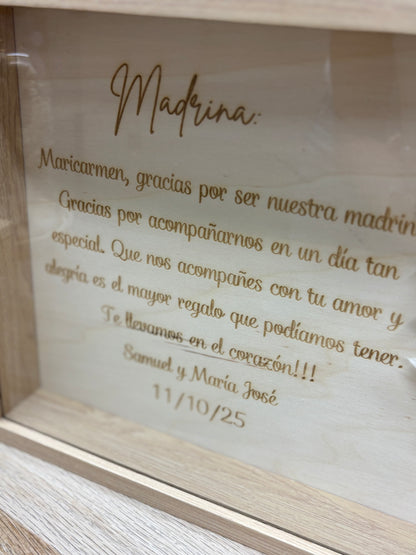 Madrina:
Maricarmen, gracias por ser nuestra madrin
Gracias por acompañarnos en un día tan
especial. Que nos acompañes con tu amor y
alegría es el mayor regalo que podíamos tener.
Te llevamos en el corazón!!!
Samuel y María José
11/10/25